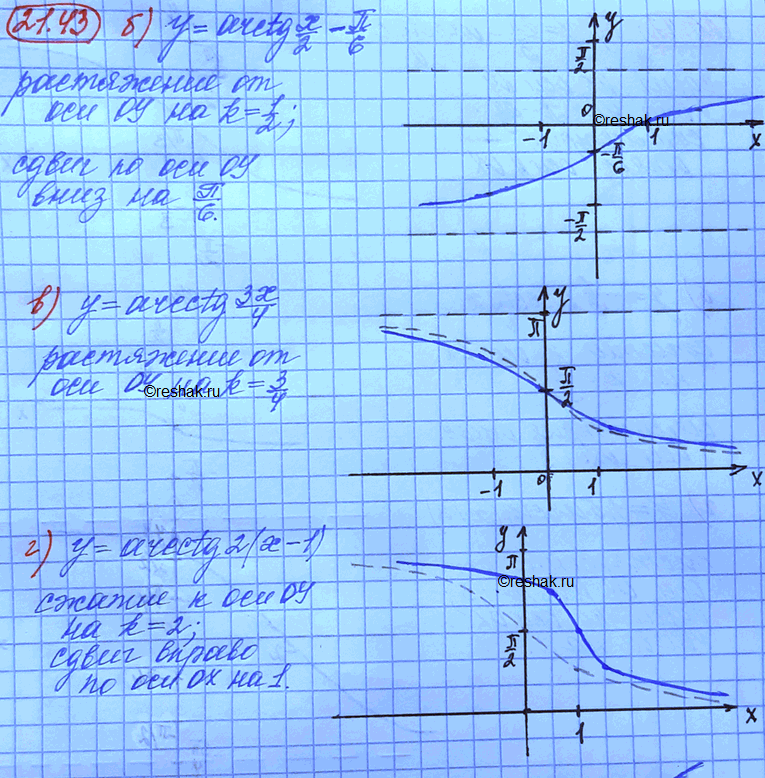 21.43 б) y = arctg x/2 - π/6
растяжение от
оси OY на k=1/2;
сдвиг по оси OY
вниз на π/6.
y
π/2
0
©reshak.ru
-1
1
x
-π/6
-π/2
в) y = arcctg 3x/4
растяжение от
оси OY на k=3/4
©reshak.ru
y
π
π/2
-1
0
1
x
г) y = arcctg 2(x-1)
сжатие к оси OY
на k=2;
сдвиг вправо
по оси OX на 1.
y
π
©reshak.ru
π/2
1
x